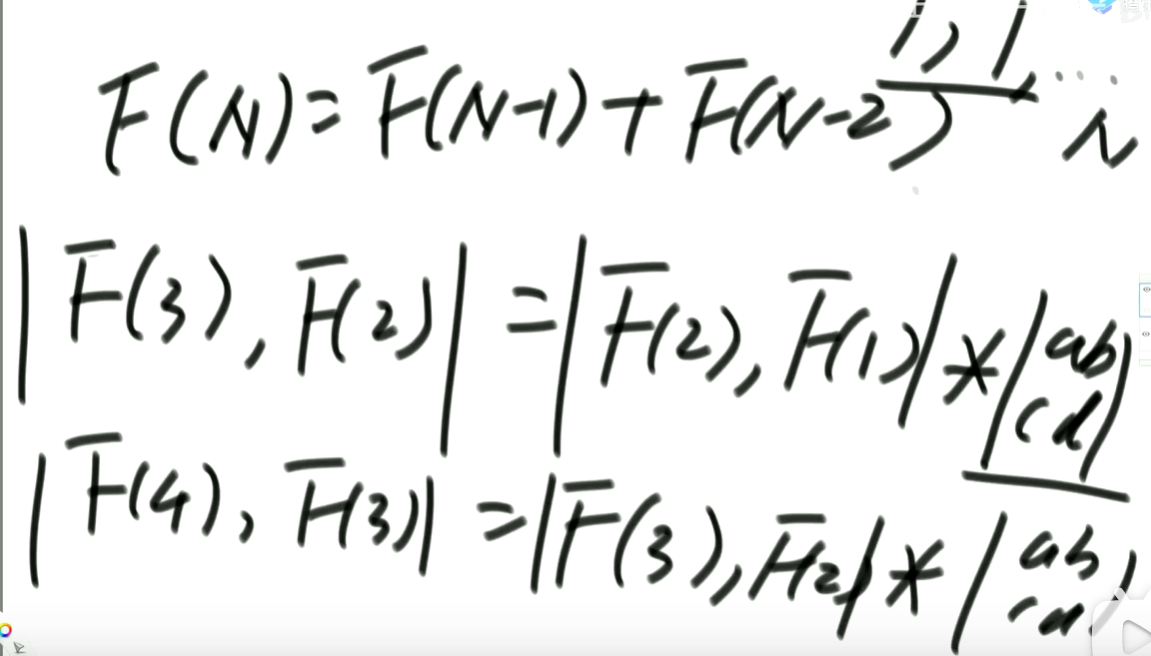 1, 1 ....
F(N) = F(N-1) + F(N-2) N
|F(3), F(2)| = |F(2), F(1)| * |ab
cd|
|F(4), F(3)| = |F(3), F2| * |ab
cd|